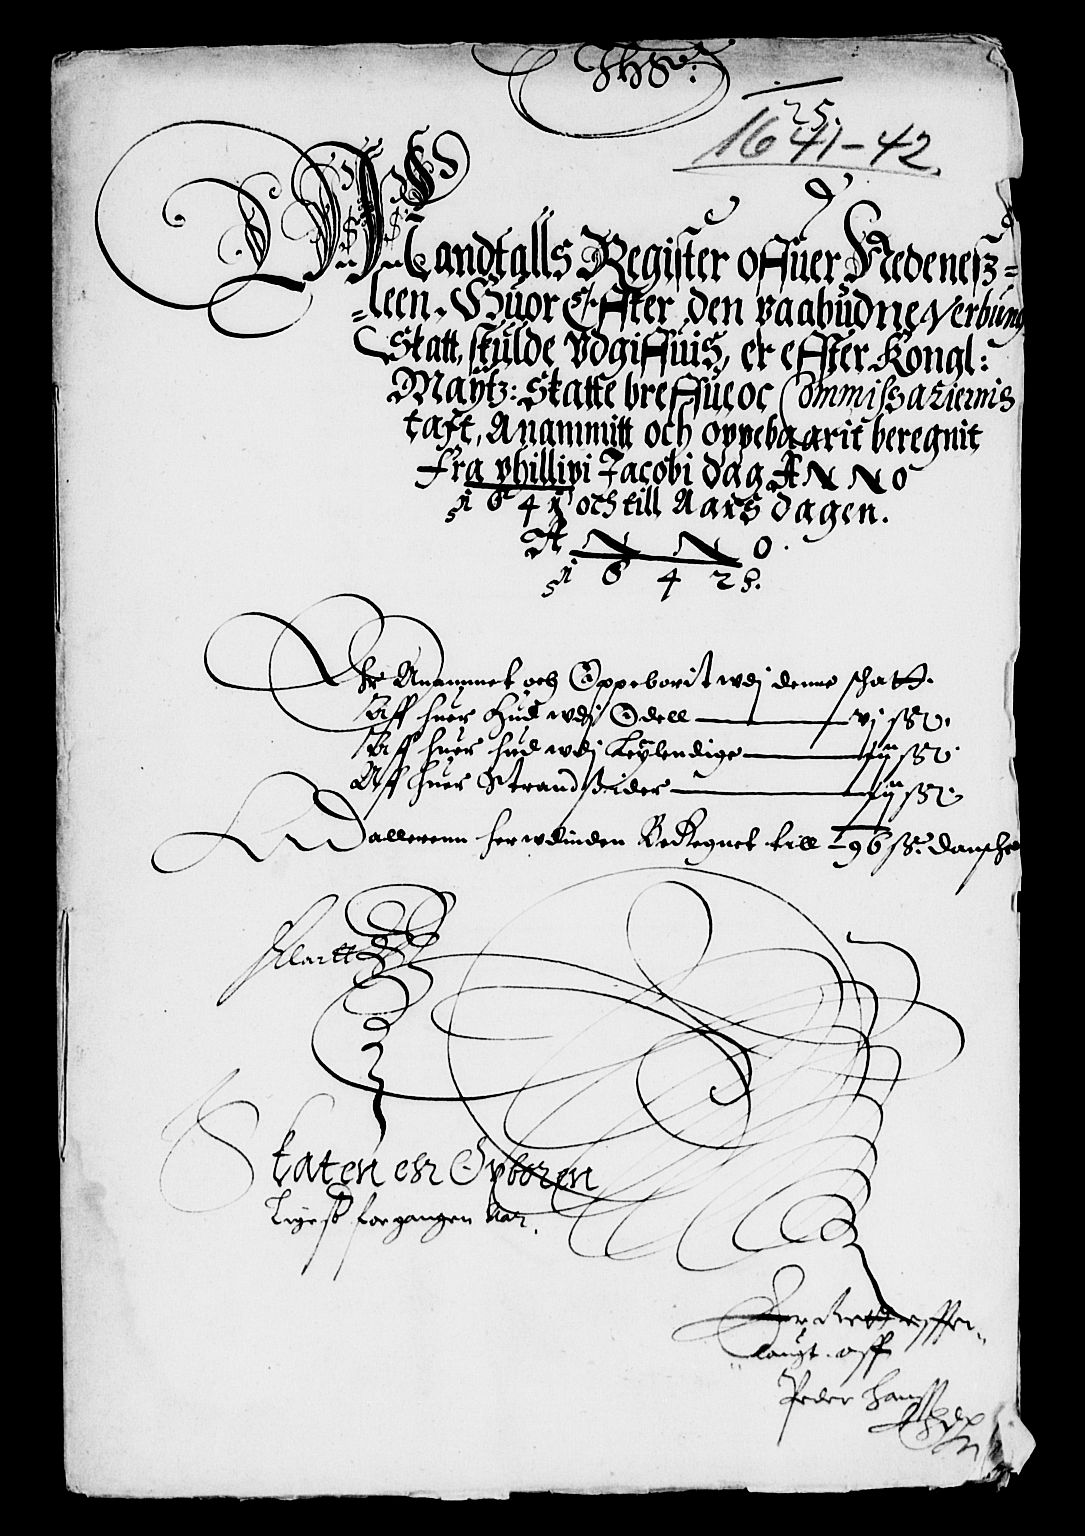 25.
1641-42
Mandtalls Register offuer Nedenesz=
=leen. Huor Effter den paabudne verbung
Skatt, skulde Udgiffuis, er effter Kongl:
Maytz: Skatte breffue oc Commissariernis
taxt, Anammitt och oppebaarit beregnit
Fra Phillipi Jacobi dag ANNO
1641 och till Aars dagen.
ANNO.
1642.
Er Anammet och Oppeborit udj denne schatt.
Aff huer Hud udj Odell — vj sk.
Aff huer hud udj Leylendige — iij sk.
Aff huer Strandsider — sk.
Dalleren herudinden Beregnet till 96 sk. danske
Klartt
Skaten ehr Opboren
ligesom forgangen Aar.
offuer=
=langt. aff
Peder Hanss